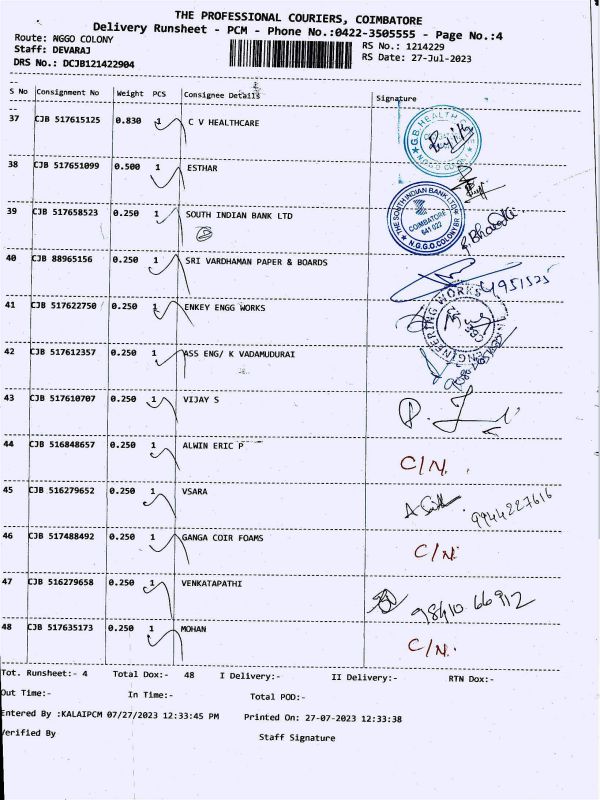 THE PROFESSIONAL COURIERS, COIMBATORE
Delivery Runsheet - PCM - Phone No.:0422-3505555 - Page No.:4
Route: NGGO COLONY RS No.: 1214229
Staff: DEVARAJ RS Date: 27-Jul-2023
DRS No.: DCJB121422904
S No Consignment No Weight PCS Consignee Details Signature
37 CJB 517615125 0.830 1 C V HEALTHCARE
G.B. HEALTH
N.G.G.O COLONY
38 CJB 517651099 0.500 1 ESTHAR
39 CJB 517658523 0.250 1 SOUTH INDIAN BANK LTD
THE SOUTH INDIAN BANK LTD
COIMBATORE
641 022
N.G.G.O. COLONY BR
40 CJB 88965156 0.250 1 SRI VARDHAMAN PAPER & BOARDS
41 CJB 517622750 0.250 1 ENKEY ENGG WORKS
ENGINEERING WORKS
42 CJB 517612357 0.250 1 ASS ENG/ K VADAMUDURAI
43 CJB 517610707 0.250 1 VIJAY S
44 CJB 516848657 0.250 1 ALWIN ERIC P C/N.
45 CJB 516279652 0.250 1 VSARA 9944227616
46 CJB 517488492 0.250 1 GANGA COIR FOAMS C/N.
47 CJB 516279658 0.250 1 VENKATAPATHI 98410 66912
48 CJB 517635173 0.250 1 MOHAN C/N.
Tot. Runsheet:- 4 Total Dox:- 48 I Delivery:- II Delivery:- RTN Dox:-
Out Time:- In Time:- Total POD:-
Entered By :KALAIPCM 07/27/2023 12:33:45 PM Printed On: 27-07-2023 12:33:38
Verified By Staff Signature